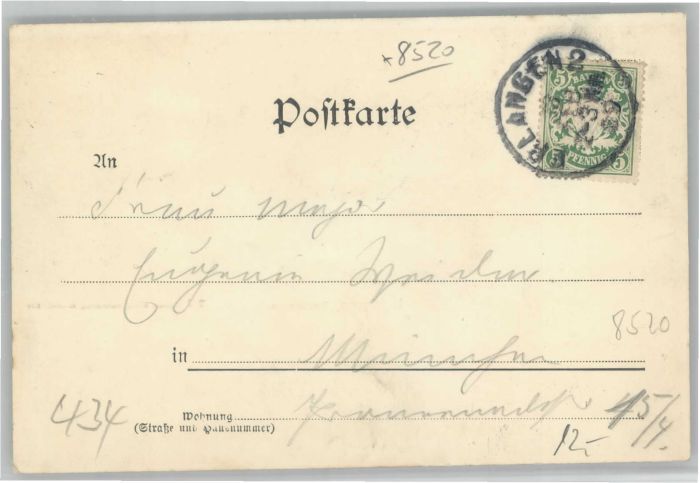 *8520
ERLANGEN 2
5 BAYERN 5
PFENNIG 5
Poſtkarte
An
Frau Major
Eugenie
8520
in München
434
Wohnung
45/4.
(Straße und Hausnummer)
12.-